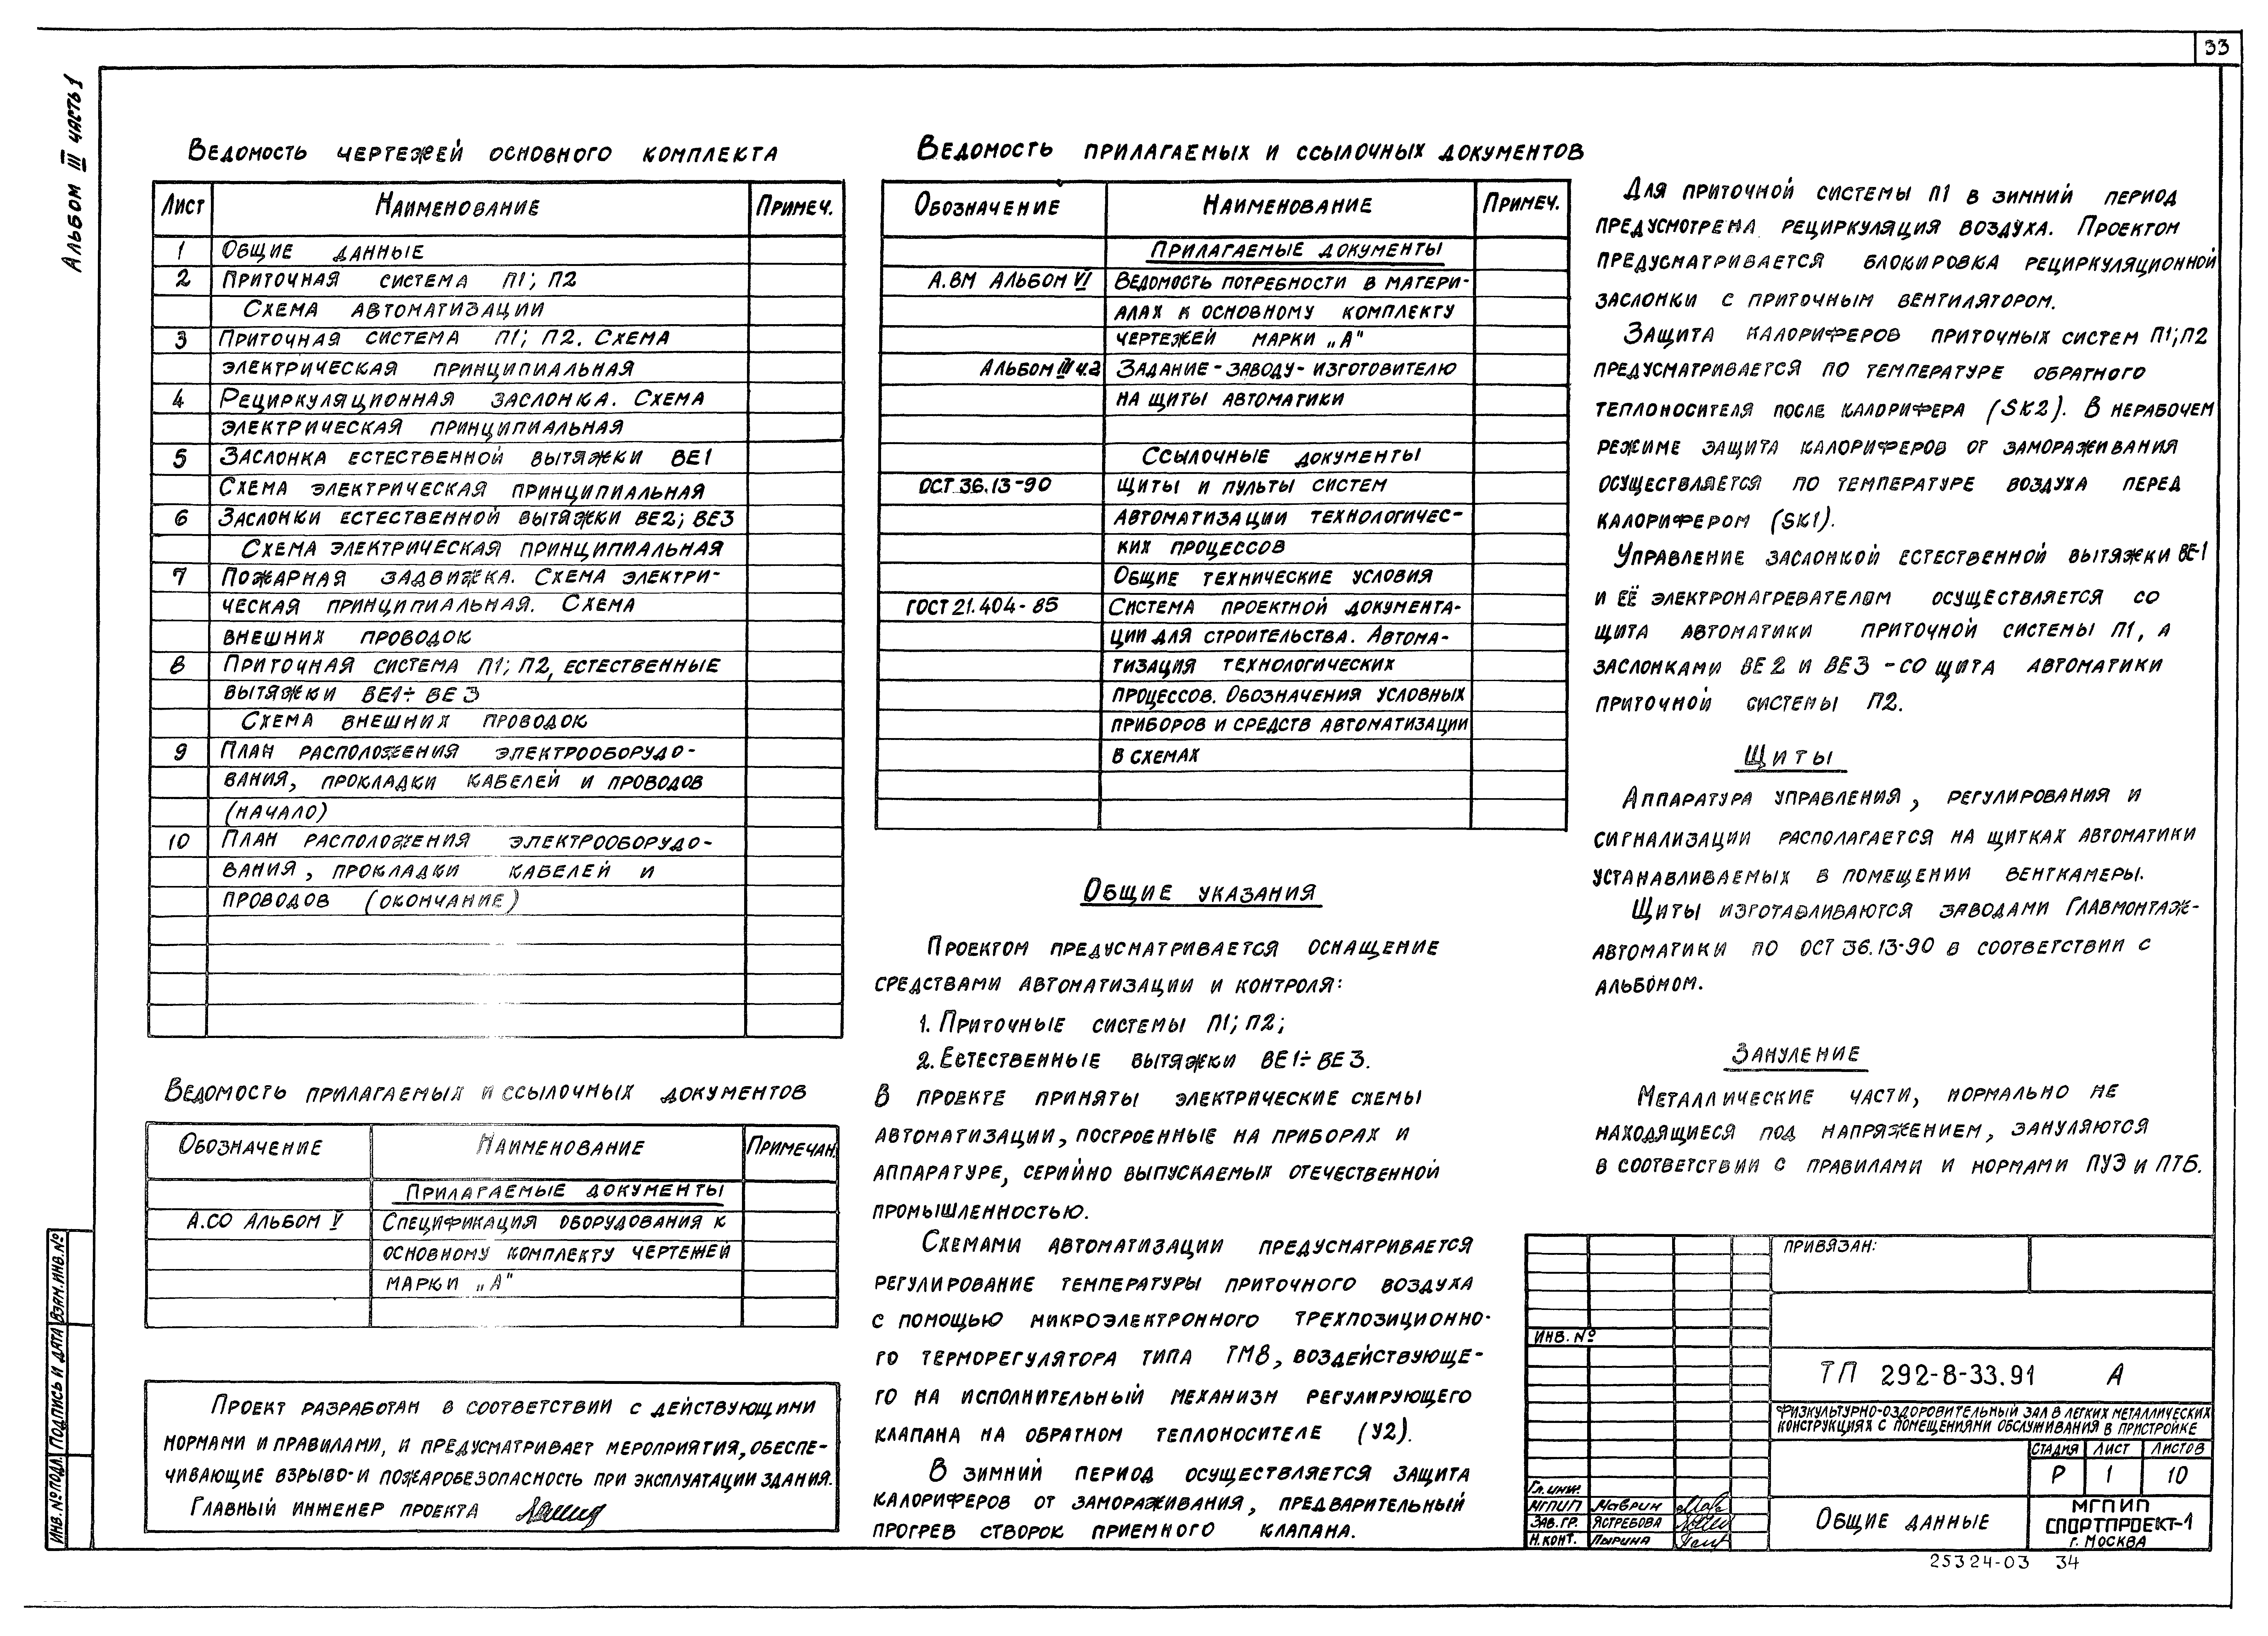 33
Альбом III часть 1
Ведомость чертежей основного комплекта
Лист Наименование Примеч.
1 Общие данные
2 Приточная система П1; П2
Схема автоматизации
3 Приточная система П1; П2. Схема
электрическая принципиальная
4 Рециркуляционная заслонка. Схема
электрическая принципиальная
5 Заслонка естественной вытяжки ВЕ1
Схема электрическая принципиальная
6 Заслонки естественной вытяжки ВЕ2; ВЕ3
Схема электрическая принципиальная
7 Пожарная задвижка. Схема электри-
ческая принципиальная. Схема
внешних проводок
8 Приточная система П1; П2, естественные
вытяжки ВЕ1÷ВЕ3
Схема внешних проводок
9 План расположения электрооборудо-
вания, прокладки кабелей и проводов
(начало)
10 План расположения электрооборудо-
вания, прокладки кабелей и
проводов (окончание)
Ведомость прилагаемых и ссылочных документов
Обозначение Наименование Примечан.
Прилагаемые документы
А.СО Альбом V Спецификация оборудования к
основному комплекту чертежей
марки „А"
Проект разработан в соответствии с действующими
нормами и правилами, и предусматривает мероприятия, обеспе-
чивающие взрыво- и пожаробезопасность при эксплуатации здания.
Главный инженер проекта
Ведомость прилагаемых и ссылочных документов
Обозначение Наименование Примеч.
Прилагаемые документы
А.ВМ Альбом VI Ведомость потребности в матери-
алах к основному комплекту
чертежей марки „А"
Альбом III ч.2 Задание-заводу-изготовителю
на щиты автоматики
Ссылочные документы
ОСТ 36.13-90 Щиты и пульты систем
автоматизации технологичес-
ких процессов
Общие технические условия
ГОСТ 21.404-85 Система проектной документа-
ции для строительства. Автома-
тизация технологических
процессов. Обозначения условных
приборов и средств автоматизации
в схемах
Общие указания
Проектом предусматривается оснащение
средствами автоматизации и контроля:
1. Приточные системы П1; П2;
2. Естественные вытяжки ВЕ1÷ВЕ3.
В проекте приняты электрические схемы
автоматизации, построенные на приборах и
аппаратуре, серийно выпускаемых отечественной
промышленностью.
Схемами автоматизации предусматривается
регулирование температуры приточного воздуха
с помощью микроэлектронного трехпозиционно-
го терморегулятора типа ТМ8, воздействующе-
го на исполнительный механизм регулирующего
клапана на обратном теплоносителе (У2).
В зимний период осуществляется защита
калориферов от замораживания, предварительный
прогрев створок приемного клапана.
Для приточной системы П1 в зимний период
предусмотрена рециркуляция воздуха. Проектом
предусматривается блокировка рециркуляционной
заслонки с приточным вентилятором.
Защита калориферов приточных систем П1; П2
предусматривается по температуре обратного
теплоносителя после калорифера (SK2). В нерабочем
режиме защита калориферов от замораживания
осуществляется по температуре воздуха перед
калорифером (SK1).
Управление заслонкой естественной вытяжки ВЕ-1
и её электронагревателем осуществляется со
щита автоматики приточной системы П1, а
заслонками ВЕ2 и ВЕ3 - со щита автоматики
приточной системы П2.
Щиты
Аппаратура управления, регулирования и
сигнализации располагается на щитках автоматики
устанавливаемых в помещении венткамеры.
Щиты изготавливаются заводами Главмонтаж-
автоматики по ОСТ 36.13-90 в соответствии с
альбомом.
Зануление
Металлические части, нормально не
находящиеся под напряжением, зануляются
в соответствии с правилами и нормами ПУЭ и ПТБ.
Привязан:
Инв. №
ТП 292-8-33.91 А
Физкультурно-оздоровительный зал в легких металлических
конструкциях с помещениями обслуживания в пристройке
Стадия Лист Листов
Р 1 10
Гл. инж.
МГПИП Маврин
Зав. гр. Ястребова
Н. конт. Пырина
Общие данные
МГПИП
Спортпроект-1
г. Москва
25324-03 34
Инв. № подл. Подпись и дата Взам. инв. №